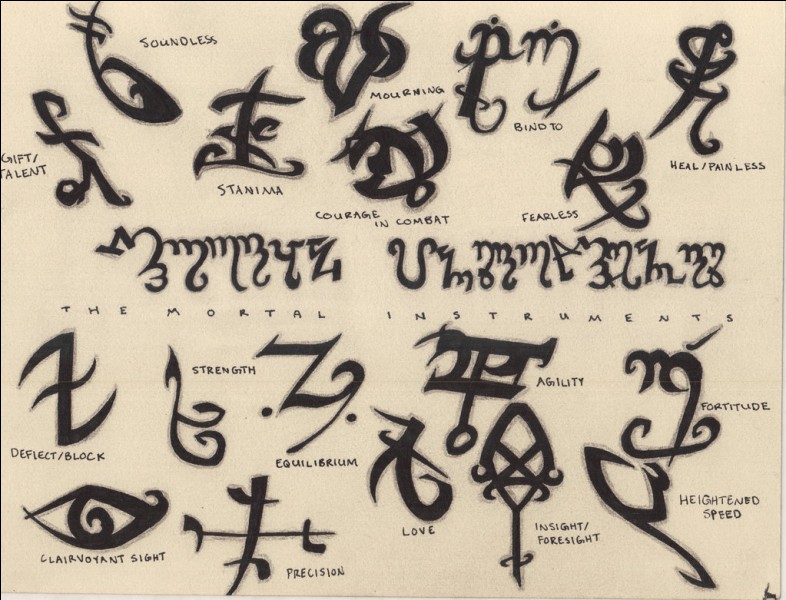 SOUNDLESS
MOURNING
BIND TO
HEAL/PAINLESS
GIFT/
TALENT
STANIMA
COURAGE
IN COMBAT
FEARLESS
THE MORTAL INSTRUMENTS
STRENGTH
AGILITY
FORTITUDE
DEFLECT/BLOCK
EQUILIBRIUM
LOVE
INSIGHT/
FORESIGHT
HEIGHTENED
SPEED
CLAIRVOYANT SIGHT
PRECISION